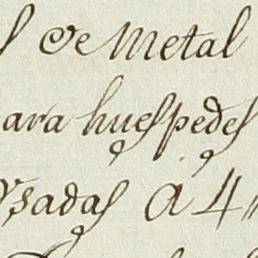 de Metal
ara huespedes
Vsadas á 4